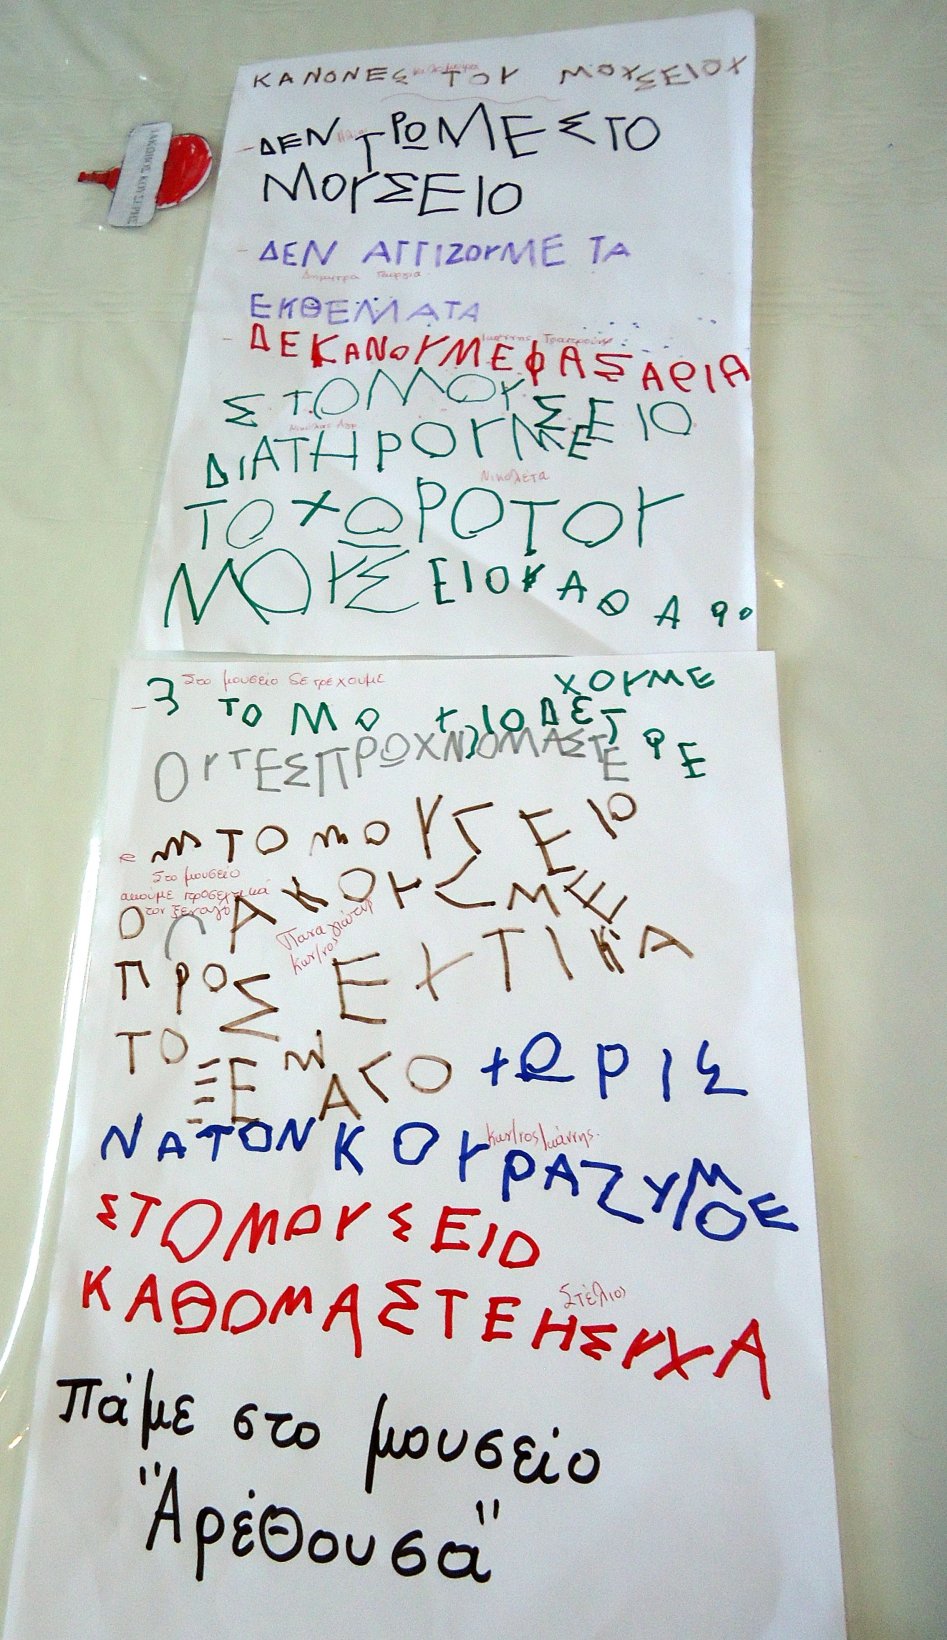 ΚΑΝΟΝΕΣ ΤΟΥ ΜΟΥΣΕΙΟΥ
-ΔΕΝ ΤΡΩΜΕ ΣΤΟ
ΜΟΥΣΕΙΟ
- ΔΕΝ ΑΓΓΙΖΟΥΜΕ ΤΑ
Δήμητρα Γεωργία
ΕΚΘΕΜΑΤΑ
- ΔΕ ΚΑΝΟΥΜΕ ΦΑΣΑΡΙΑ
ΣΤΟ ΜΟΥΣΕΙΟ
ΔΙΑΤΗΡΟΥΜΕ
Νικολέτα
ΤΟ ΧΩΡΟ ΤΟΥ
ΜΟΥΣΕΙΟ ΚΑΘΑΡΟ
Στο μουσείο δε τρέχουμε
ΧΟΥΜΕ
- Σ ΤΟ ΜΟ ΙΟ ΔΕ Τ ΡΕ
ΟΥΤΕ ΣΠΡΩΧΝΟΜΑΣΤΕ
ΣΤΟ ΜΟΥΣΕΙΟ
Στο μουσείο
ακούμε προσεχτικά
τον ξεναγό
ΑΚΟΥΣΜΕ
Παναγιώτης
Κων/νος
ΠΡΟΣΕΧΤΙΚΑ
ΤΟ ΞΕΝΑΓΟ ΧΩΡΙΣ
ΝΑ ΤΟΝ ΚΟΥΡΑΖΥΜΟΕ
Κων/νος Ιωάννης
ΣΤΟ ΜΟΥΣΕΙΟ
Στέλιος
ΚΑΘΟΜΑΣΤΕ ΗΣΥΧΑ
πάμε στο μουσείο
"Αρέθουσα"